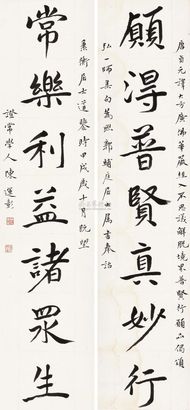 唐貞元譯大方廣佛華嚴經入不思議解脫境界普賢行願品偈頌
願得普賢真妙行
弘一師集句郭輔庭居士属書奉詒
衡居士蓮鑒時甲戌歲十月既望
常樂利益諸眾生
證常學人陳運彰